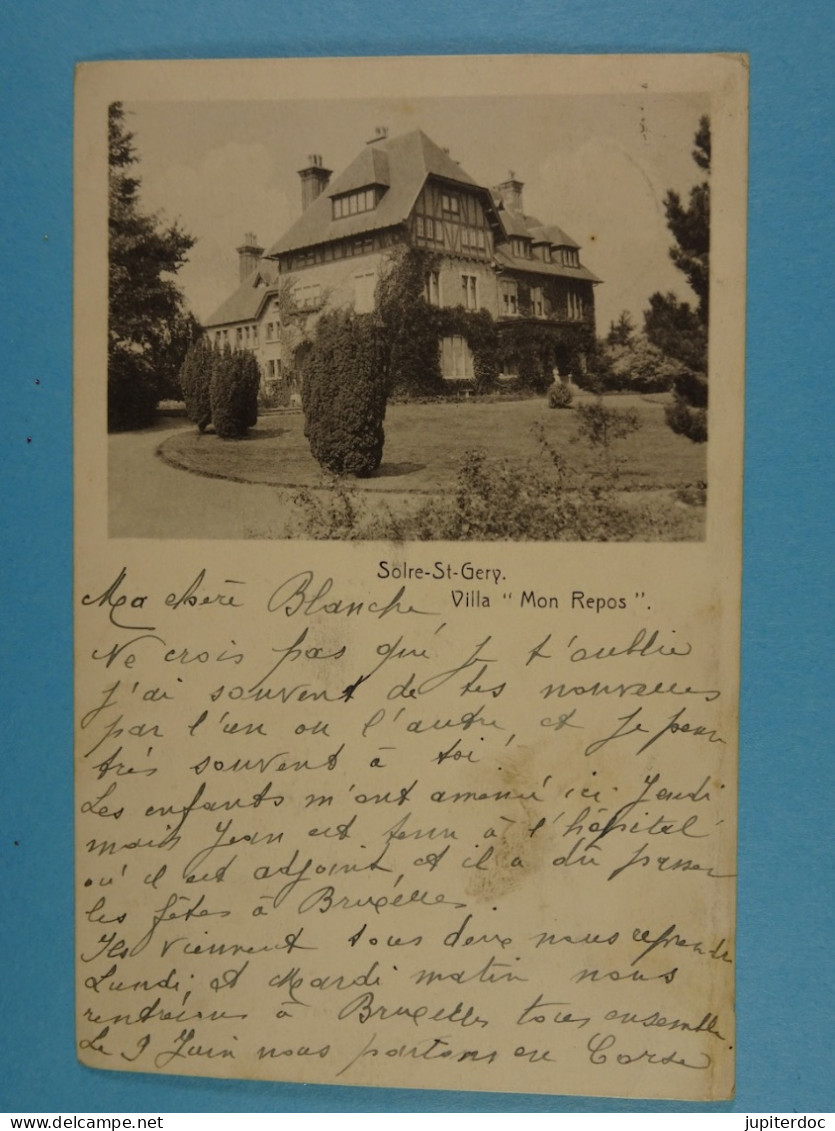 Solre-St-Gery.
Villa " Mon Repos ".
Ma chère Blanche,
Ne crois pas que je t'oublie
j'ai souvent de tes nouvelles
par l'un ou l'autre, et je pense
très souvent à toi!
Les enfants m'ont amené ici Jeudi
mais Jean est tenu à l'hôpital
où il est adjoint, et il a dû passer
les fêtes à Bruxelles.
Ils viennent tous deux nous reprendre
Lundi, et Mardi matin nous
rentrerons à Bruxelles tous ensemble.
Le 9 Juin nous partons en Corse
jupiterdoc